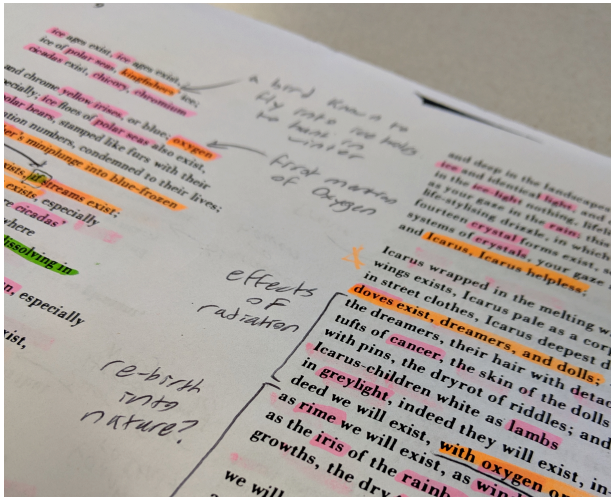 ice ages exist, ice ages exist,
ice of polar seas, kingfishers' ice;
cicadas exist, chicory, chromium
and chrome yellow irises, or blue; oxygen
especially; ice floes of polar seas also exist,
polar bears, stamped like furs with their
identification numbers, condemned to their lives;
miniplunge into blue-frozen
streams exist;
exists, especially
cicadas
where
dissolving in
especially
exist,
a bird known to
fly into ice holes
to hunt in
winter
first mention
of Oxygen
effects
of
radiation
re-birth
into
nature?
and deep in the landscape
ice and identical light, and
in the ice-light
as your gaze in
life-stylising drizzle, in which
fourteen crystal forms exist,
systems of crystals, your gaze
and Icarus, Icarus helpless;
Icarus wrapped in the melting
wings exists, Icarus pale as a
in street clothes, Icarus deepest
doves exist, dreamers, and dolls;
the dreamers, their hair with
tufts of cancer, the skin of the dolls
with pins, the dryrot of riddles; and
Icarus-children white as lambs
in greylight, indeed they will exist, in
deed we will exist, with oxygen
as rime we will exist, as
as the iris of the
growths, the dry
we will